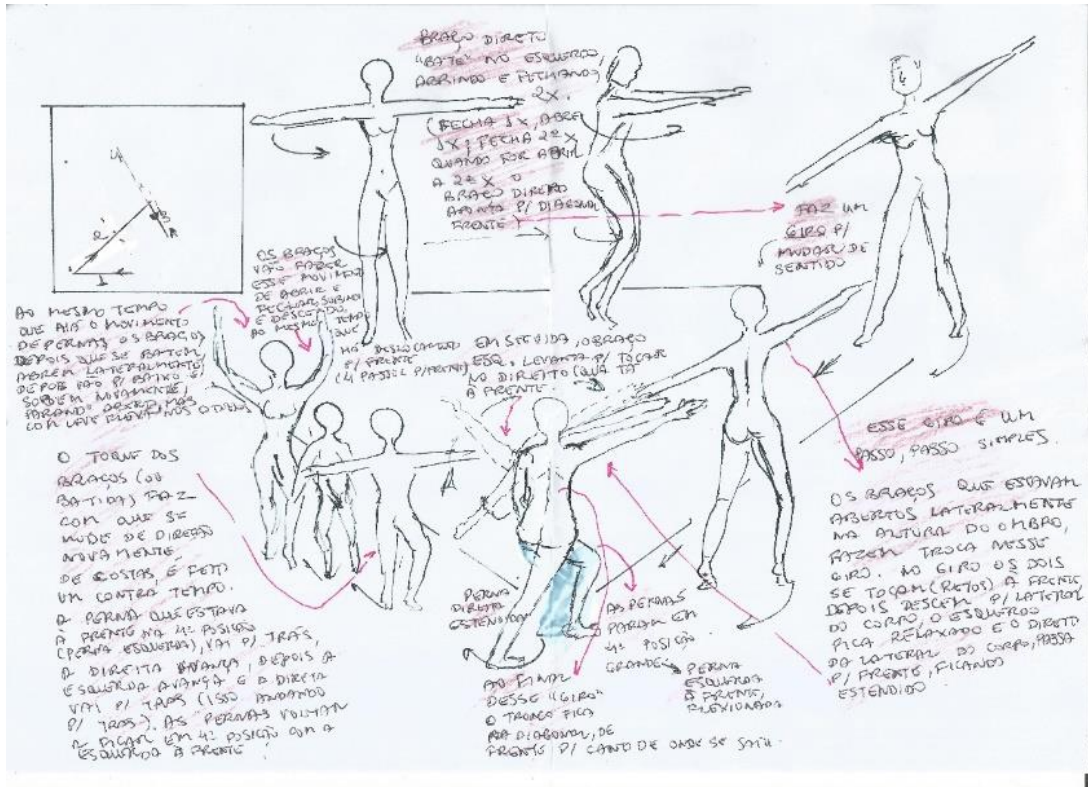 BRAÇO DIREITO
"BATE" NO ESQUERDO,
ABRINDO E FECHANDO
2X.
(FECHA 1X, ABRE
1X; FECHA 2ª X,
QUANDO FOR ABRIR
A 2ª X O
BRAÇO DIREITO
APONTA P/ DIAGONAL
FRENTE)
FAZ UM
GIRO P/
MUDAR DE
SENTIDO
OS BRAÇOS
VÃO FAZER
ESSE MOVIMENTO
DE ABRIR E
FECHAR, SUBINDO
E DESCENDO,
AO MESMO TEMPO
QUE
HÁ DESLOCAMENTO
P/ FRENTE
(4 PASSOS P/ FRENTE)
AO MESMO TEMPO
QUE HÁ O MOVIMENTO
DE PERNAS OS BRAÇOS
DEPOIS QUE SE BATEM,
ABREM LATERALMENTE,
DEPOIS VÃO P/ BAIXO E
SOBEM NOVAMENTE,
PARANDO ABERTO, MAS
COM LEVE FLEXÃO NOS COTOVELOS
EM SEGUIDA, O BRAÇO
ESQ. LEVANTA P/ TOCAR
NO DIREITO (QUE TÁ
À FRENTE.
ESSE GIRO É UM
PASSO, PASSO SIMPLES.
OS BRAÇOS QUE ESTAVAM
ABERTOS LATERALMENTE
NA ALTURA DO OMBRO,
FAZEM TROCA NESSE
GIRO. NO GIRO OS DOIS
SE TOCAM (RETOS) À FRENTE,
DEPOIS DESCEM P/ LATERAL
DO CORPO, O ESQUERDO
FICA RELAXADO E O DIREITO
DA LATERAL DO CORPO, PASSA
P/ FRENTE, FICANDO
ESTENDIDO.
O TOQUE DOS
BRAÇOS (OU
BATIDA) FAZ
COM QUE SE
MUDE DE DIREÇÃO
NOVAMENTE
DE COSTAS, É FEITO
UM CONTRA TEMPO.
A PERNA QUE ESTAVA
À FRENTE NA 4ª POSIÇÃO
(PERNA ESQUERDA), VAI P/ TRÁS,
A DIREITA AVANÇA, DEPOIS A
ESQUERDA AVANÇA E A DIREITA
VAI P/ TRÁS (ISSO ANDANDO
P/ TRÁS). AS PERNAS VOLTAM
A FICAR EM 4ª POSIÇÃO COM A
ESQUERDA À FRENTE.
PERNA
DIREITA
ESTENDIDA
AS PERNAS
PARAM EM
4ª POSIÇÃO
GRANDE
PERNA
ESQUERDA
À FRENTE,
FLEXIONADA
AO FINAL
DESSE "GIRO"
O TRONCO FICA
NA DIAGONAL, DE
FRENTE P/ CANTO DE ONDE SE SAIU.